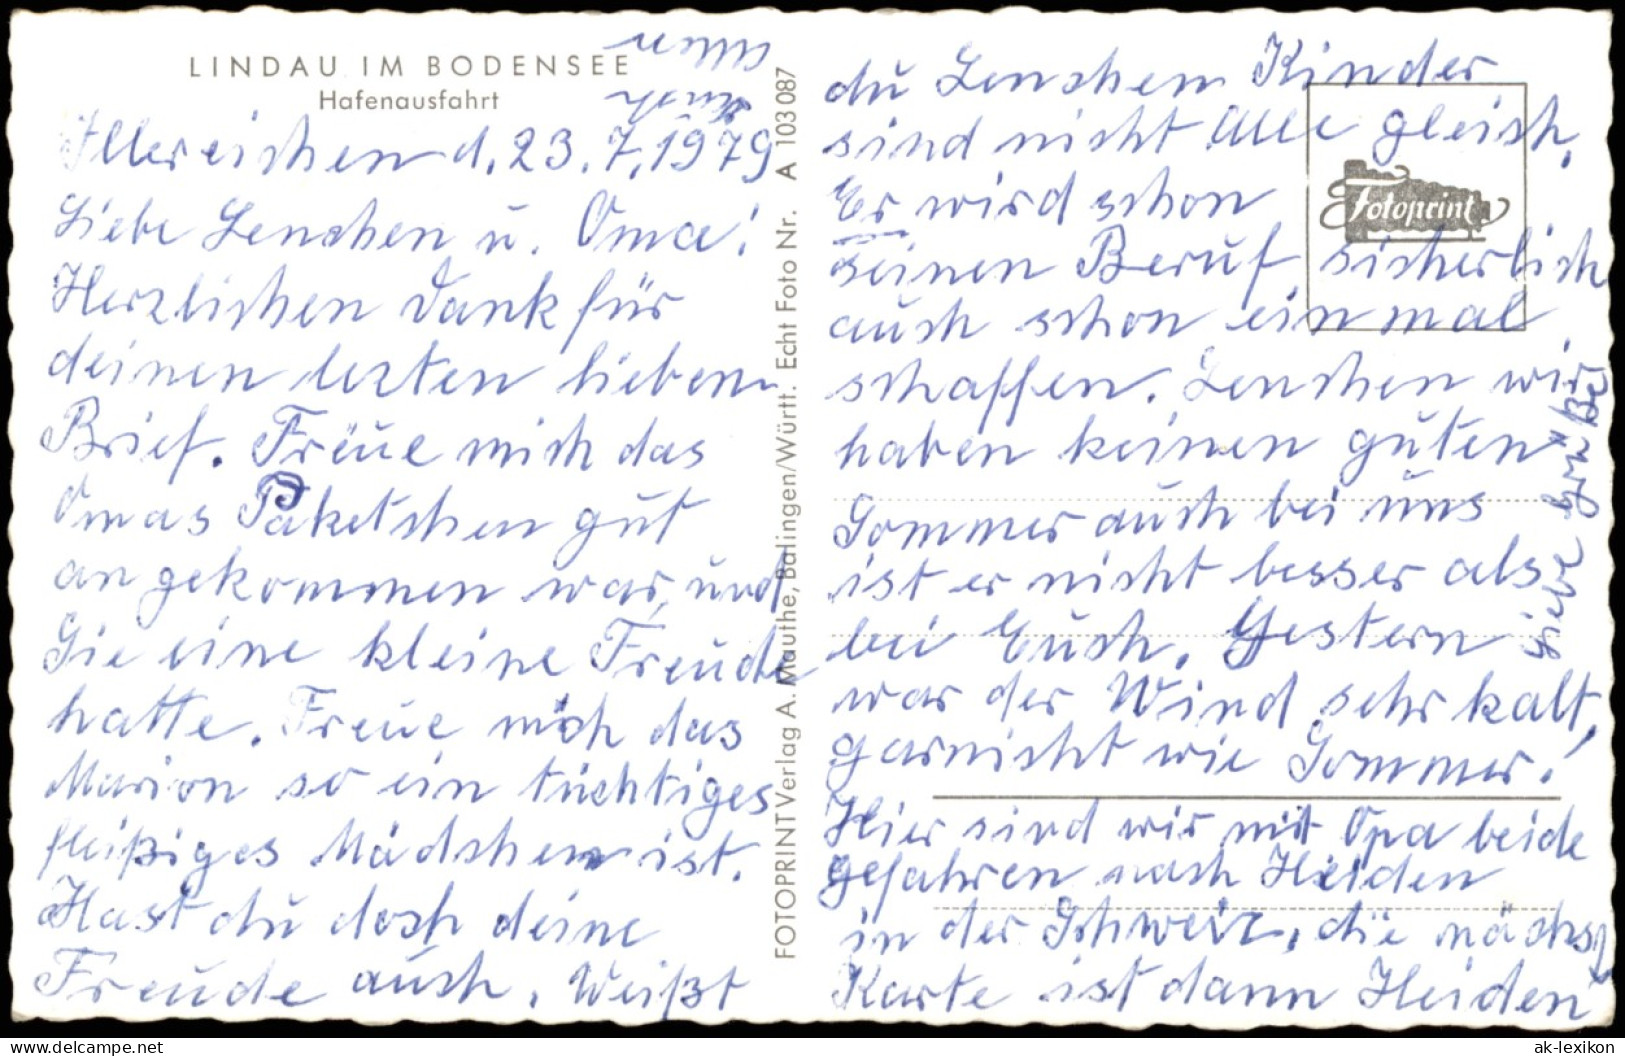 LINDAU IM BODENSEE
Hafenausfahrt
Illereichen d. 23.7.1979
Liebe Lenchen u. Oma!
Herzlichen Dank für
deinen lezten lieben
Brief. Freue mich das
Omas Paketchen gut
angekommen war, und
Sie eine kleine Freude
hatte. Freue mich das
Marion so ein tüchtiges
fleißiges Mädchen ist.
Hast du doch deine
Freude auch. Weißt
FOTOPRINT Verlag A. Mauthe, Balingen/Württ. Echt Foto Nr. A 103 087
du Lenchen Kinder
sind nicht Alle gleich.
Er wird schon
seinen Beruf sicherlich
auch schon einmal
schaffen. Lenchen wir
haben keinen guten
Sommer auch bei uns
ist er nicht besser als
bei Euch. Gestern
war der Wind sehr kalt,
garnicht wie Sommer!
Hier sind wir mit Opa beide
gefahren nach Heiden
in der Schweiz, die nächst
Karte ist dann Heiden
Fotoprint
liebe Grüße
ak-lexikon